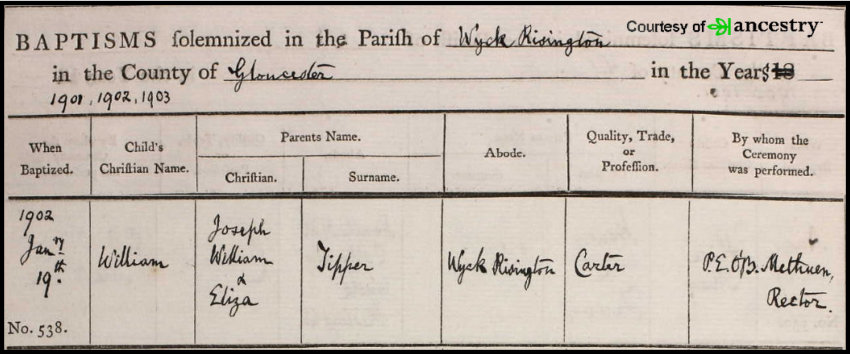 Courtesy of ancestry
BAPTISMS ſolemnized in the Pariſh of Wyck Risington
in the County of Gloucester in the Years 18
1901, 1902, 1903
When Baptized.
Child's Chriſtian Name.
Parents Name.
Chriſtian.
Surname.
Abode.
Quality, Trade, or Profeſſion.
By whom the Ceremony was performed.
1902
Janry
19th.
No. 538.
William
Joseph
William
&
Eliza
Tipper
Wyck Risington
Carter
P.E. O'B. Methuen,
Rector.